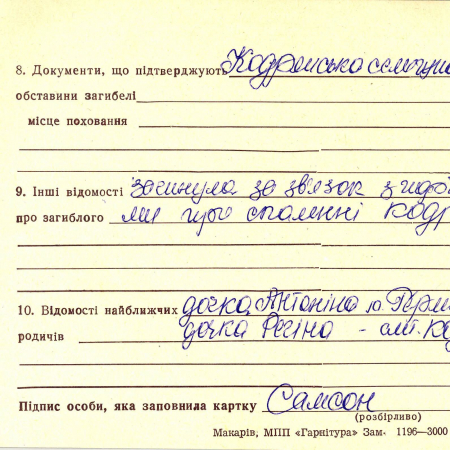 8. Документи, що підтверджують Кодренська
обставини загибелі
місце поховання
9. Інші відомості загинула за зв'язок з
про загиблого ми при спаленні Кодр
10. Відомості найближчих дочка Антоніна
родичів дочка Регіна - смт.
Підпис особи, яка заповнила картку Самсон
(розбірливо)
Макарів, МПП «Гарнітура» Зам. 1196—3000